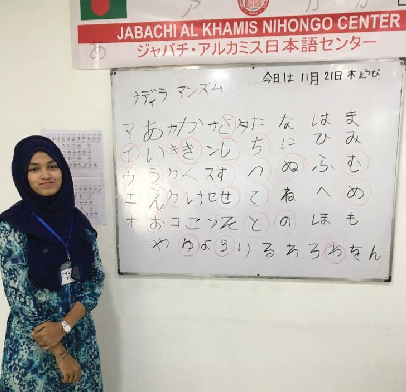 JABACHI AL KHAMIS NIHONGO CENTER
ジャバチ・アルカミス日本語センター
今日は 11月 21日 木ようび
ナディラ マンズム
マ あ や か サ さ タ た な は ま
イ い き き シ し ち に ひ み
ウ う ク く ス す つ ぬ ふ む
エ え ケ け セ せ て ね へ め
オ お コ こ ソ そ と の ほ も
や ゆ よ ら り る れ ろ わ を ん